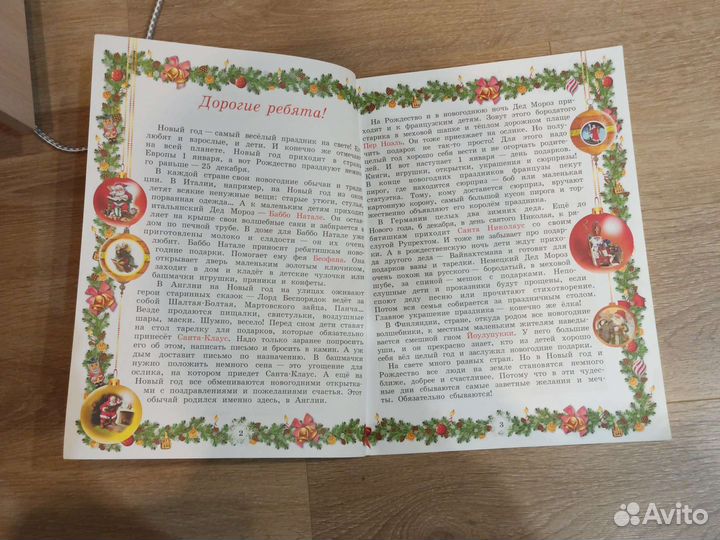 Дорогие ребята!
Новый год — самый весёлый праздник на свете! Его
любят и взрослые, и дети. И конечно же отмечают
на всей планете. Новый год приходит в страны
Европы 1 января, а вот Рождество празднуют немно-
го раньше — 25 декабря.
В каждой стране свои новогодние обычаи и тради-
ции. В Италии, например, на Новый год из окон
летят всякие ненужные вещи: старые утюги, стулья,
порванная одежда... А к маленьким детям приходит
итальянский Дед Мороз — Баббо Натале. Он остав-
ляет на крыше свои волшебные сани и забирается в
дом по печной трубе. В доме для Баббо Натале уже
приготовлены молоко и сладости — он их очень
любит. Баббо Натале приносит ребятишкам ново-
годние подарки. Помогает ему фея Беофана. Она
открывает дверь маленьким золотым ключиком,
заходит в дом и кладёт в детские чулочки или
башмачки игрушки, пряники и конфеты.
В Англии на Новый год на улицах оживают
герои старинных сказок — Лорд Беспорядок ведёт за
собой Шалтая-Болтая, Мартовского зайца, Панча...
Везде продаются пищалки, свистульки, воздушные
шары, маски. Шумно, весело! Перед сном дети ставят
на стол тарелку для подарков, которые обязательно
принесёт Санта-Клаус. Надо только заранее попросить
его об этом, написать письмо и бросить в камин. А уж
дым доставит письмо по назначению. В башмачки
нужно положить немного сена — это угощение для
ослика, на котором приедет Санта-Клаус. А ещё на
Новый год все обмениваются новогодними открытка-
ми с поздравлениями и пожеланиями счастья. Этот
обычай родился именно здесь, в Англии.
2
На Рождество и в новогоднюю ночь Дед Мороз при-
ходит и к французским детям. Зовут этого бородатого
старика в меховой шапке и тёплом дорожном плаще
Пер Ноэль. Он тоже приезжает на ослике. Но полу-
чить подарок не так-то просто! Для этого надо
целый год хорошо себя вести и не огорчать родите-
лей. И вот наступает 1 января — день подарков.
Книги, игрушки, открытки, украшения и сюрпризы!
В конце новогодних праздников французы пекут
пирог, где находится сюрприз — боб или маленькая
статуэтка. Тому, кому достанется сюрприз, вручают
картонную корону, самый большой кусок пирога и тор-
жественно объявляют его королём праздника.
В Германии целых два зимних деда. Ещё до
Нового года, 6 декабря, в день святого Николая, к ре-
бятишкам приходит Санта Николаус со своим
слугой Рупрехтом. И тоже не забывают про подар-
ки. А в рождественскую ночь дети ждут прихо-
да другого деда — Вайнахтсмана и готовят для
подарков вазы и тарелки. Немецкий Дед Мороз
очень похож на русского — бородатый, в меховой
шубе, за спиной — мешок с подарками. Непо-
слушные дети и проказники будут прощены, если
споют деду песню или прочитают стихотворение.
Потом вся семья собирается за праздничным столом.
Главное украшение праздника — конечно же ёлка!
В Финляндии, стране, откуда родом все новогодние
волшебники, к местным маленьким жителям наведы-
вается смешной гном Йоулупукки. У него большие
уши, и он прекрасно знает, кто из детей хорошо
себя вёл целый год и заслужил новогодние подарки.
На свете много разных стран. Но в Новый год и
Рождество все люди на земле становятся немного
ближе, добрее и счастливее. Потому что в эти чудес-
ные дни сбываются самые заветные желания и меч-
ты. Обязательно сбываются!
3
Avito